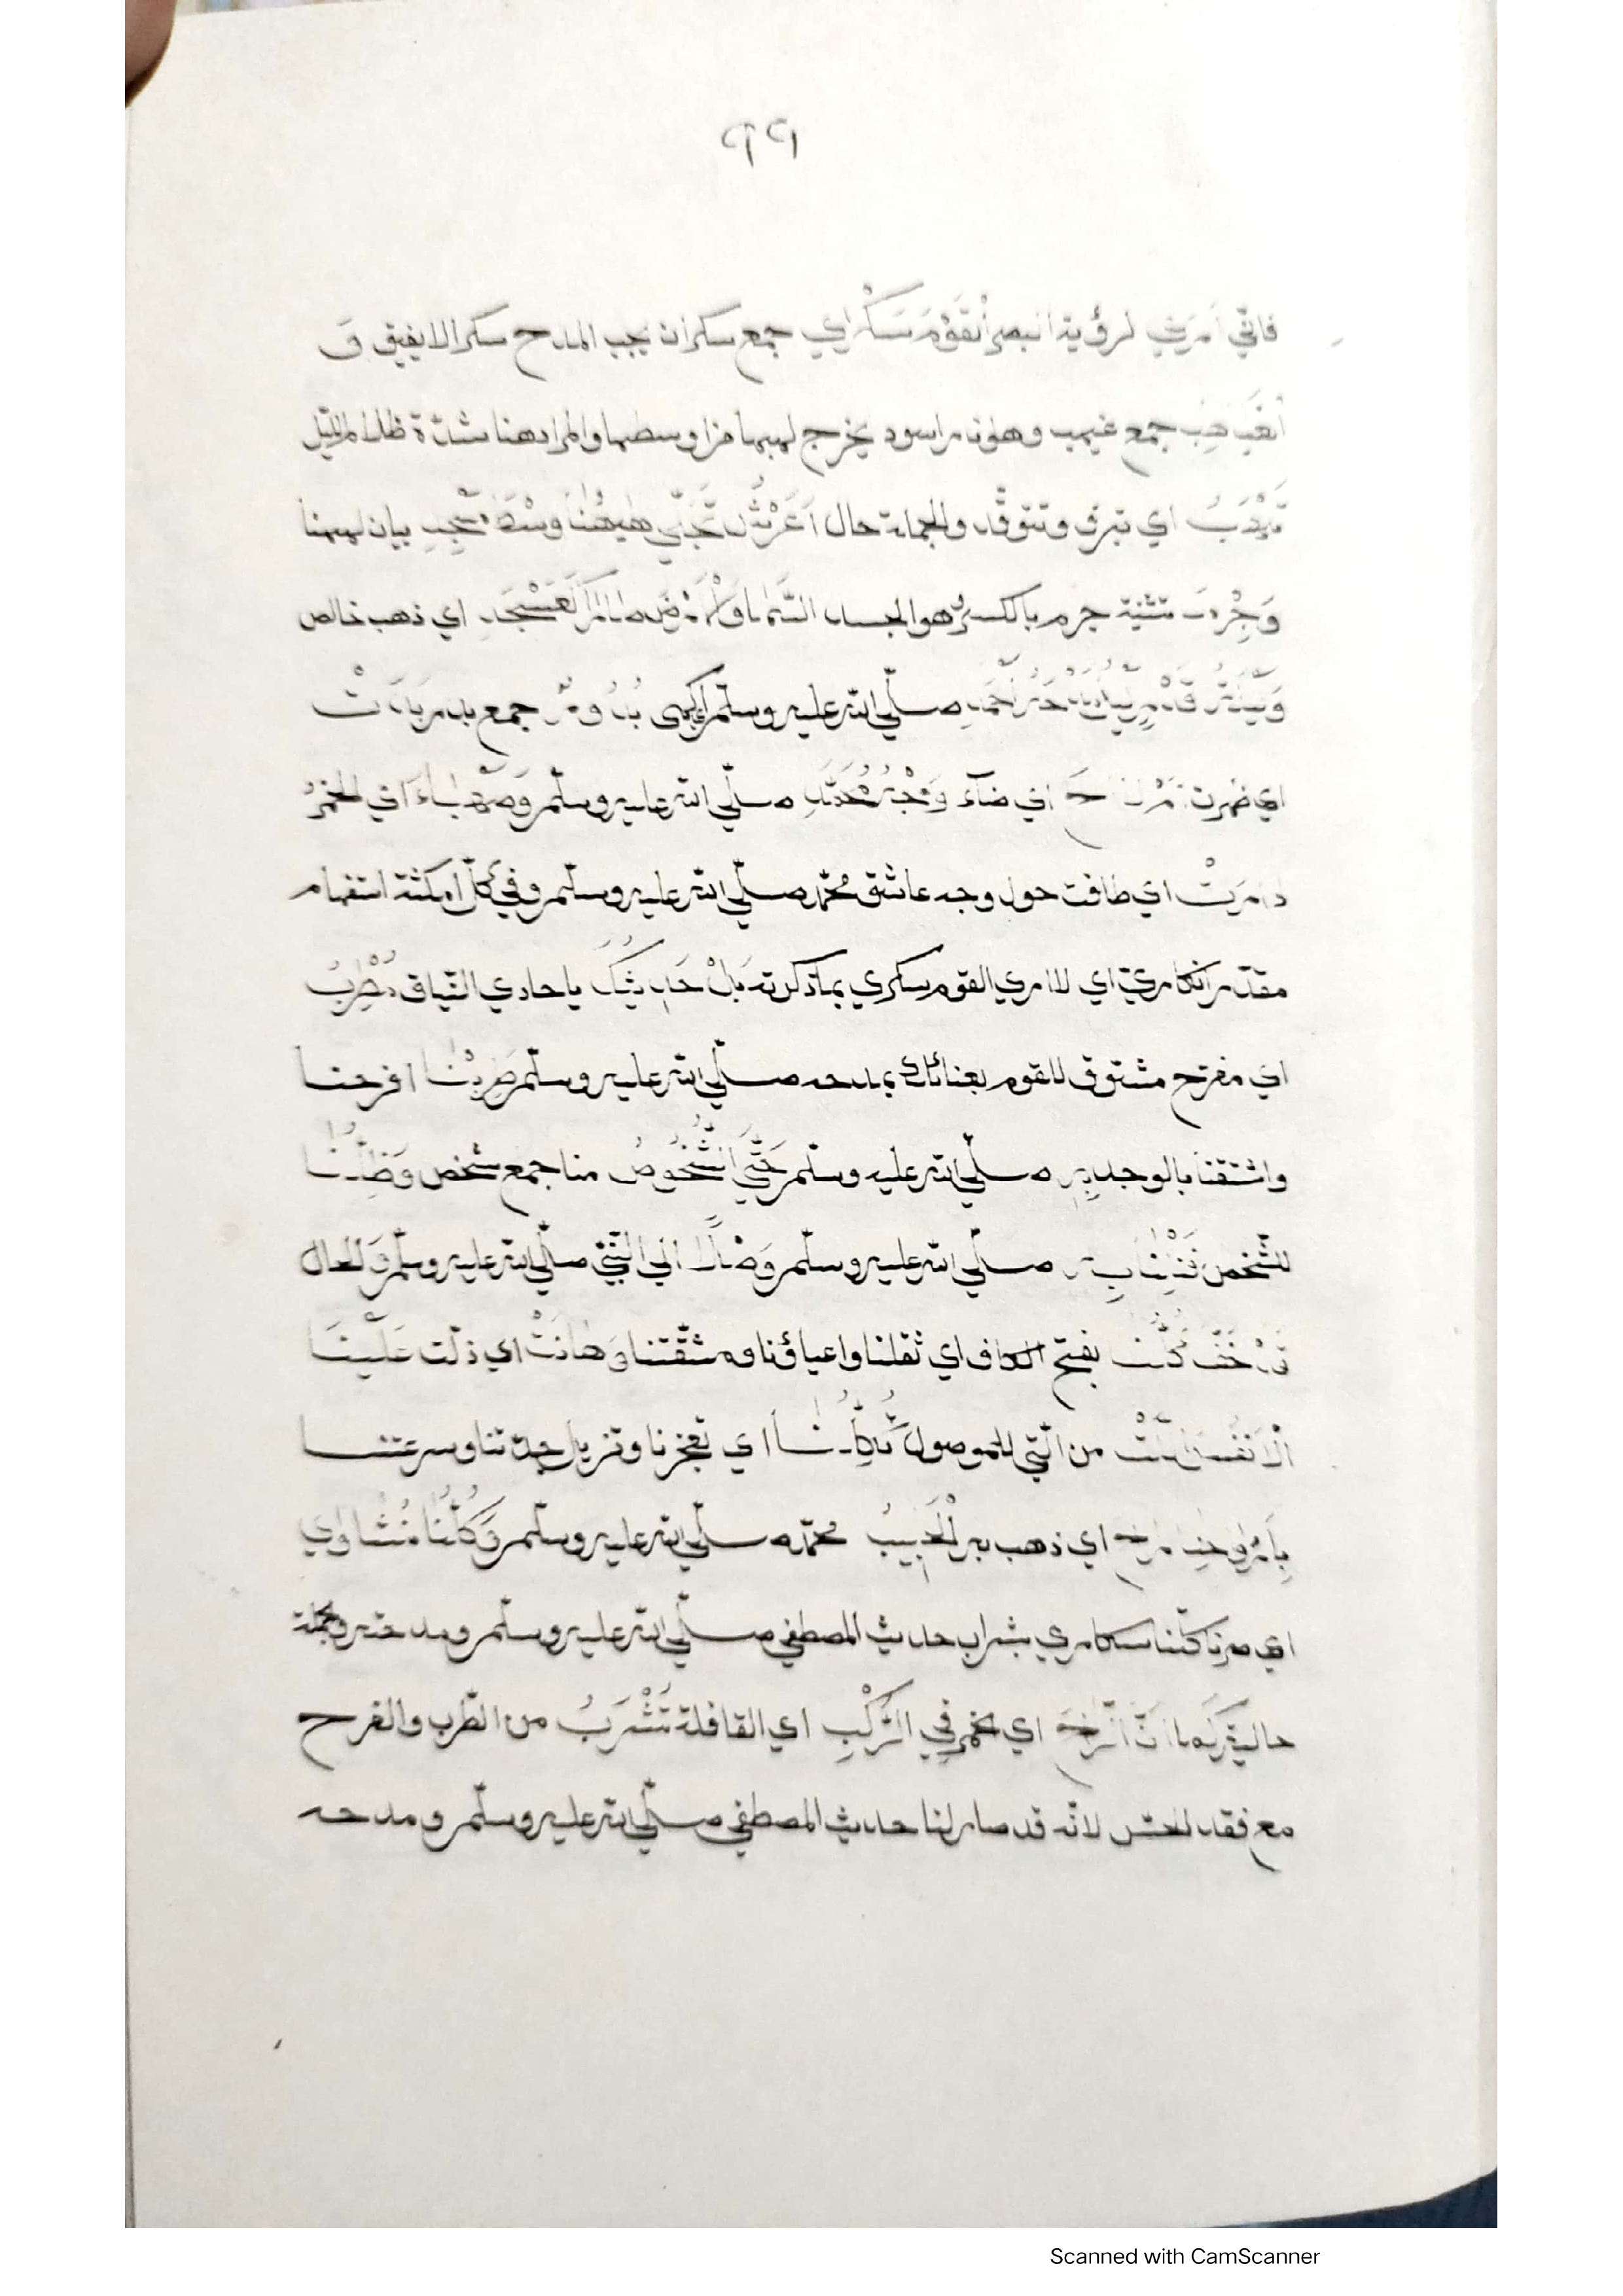 ٩٩
فانّي أَمَرَيٰنِي لرؤية البصر أَلْقَوْمَ سَكْرٰي جمع سكران بحب المدح سكرا لا يفيق وَ
الغَيَاهِبُ جمع غيهب وهو نار اسود يخرج لهبها من اوسطها والمراد هنا شدّة ظلام اللّيل
تَلْهَبُ اي تبرق وتتوقّد والجملة حال أَعَرْشٌ تَجَلّٰي هٰيهُنَا وَسْطَ مَسْجِدِ بيان لههنا
وَجِرْمَ تثنية جرم بالكسر وهو الجسد السَّمٰا وَالْأَرْضِ صارا كَعَسْجَدِ اي ذهب خالص
صلّي الله عليه وسلّم بُدُورٌ جمع بدر بَدَتْ
اي ظهرن أَمْ لَاحَ اي ضآء وَجْهُ مُحَمَّدِ صلّي الله عليه وسلّم وَصَهْبَاءُ اي الخمرُ
دَارَتْ اي طافت حول وجه عاشق محمّد صلّي الله عليه وسلّم وفي كلّ امكنة استفهام
مقدّر انكاريّ اي لا اري القوم سكري بما ذكرته بَلْ حَدِيثُكَ يا حادي النّياق مُطْرِبُ
اي مفرّح مشوّق للقوم بغنائك بمدحه صلّي الله عليه وسلّم طَرِبْنَا افرحنا
واشتقنا بالوجد بِهِ صلّي الله عليه وسلّم حَتَّي الشُّخُوصُ منا جمع شخص وَظِلُّنَا
للشّخص فَنِيْنَا بِهِ صلّي الله عليه وسلّم وَصْلًا الي النّبيّ صلّي الله عليه وسلّم وَ الحال
قَدْ خَفَّ كَلُّنَا بفتح الكاف اي ثقلنا واعياؤنا ومشقّتنا وَهَانَتْ اي ذلّت عَلَيْنَا
الْأَنْفُسُ اللَّتْ من الّتي للموصول تُكِلُّنَا اي تعجزنا وتزيل جدّتنا وسرعتنا
بِأَرْوَاحِنَا رَاحَ اي ذهب بها الْحَبِيبُ محمّد صلّي الله عليه وسلّم وَكُلُّنَا نُشَاوٰي
اي صرنا كلّنا سكاري بشراب حديث المصطفي صلّي الله عليه وسلّم ومدحته وجملة
حالية كَمَا أَنَّ الرَّاحَ اي الخمر فِي الرَّكْبِ اي القافلة تُشْرَبُ من الطّرب والفرح
مع فقد الحسّ لانّه قد صار لنا حديث المصطفي صلّي الله عليه وسلّم ومدحه
Scanned with CamScanner